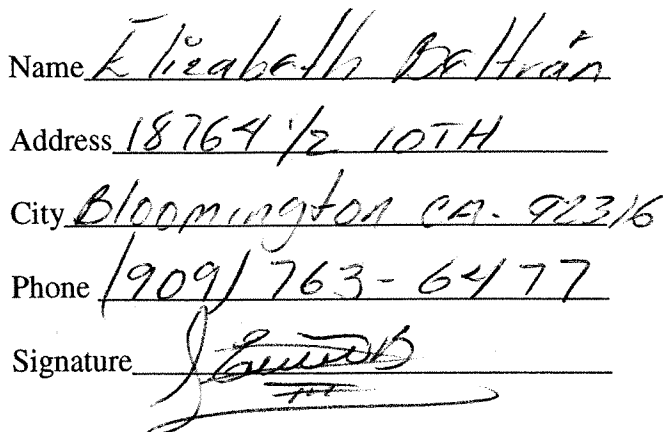 Name Elizabeth Beltrán
Address 18764 1/2 10TH
City Bloomington CA. 92316
Phone (909) 763-6477
Signature